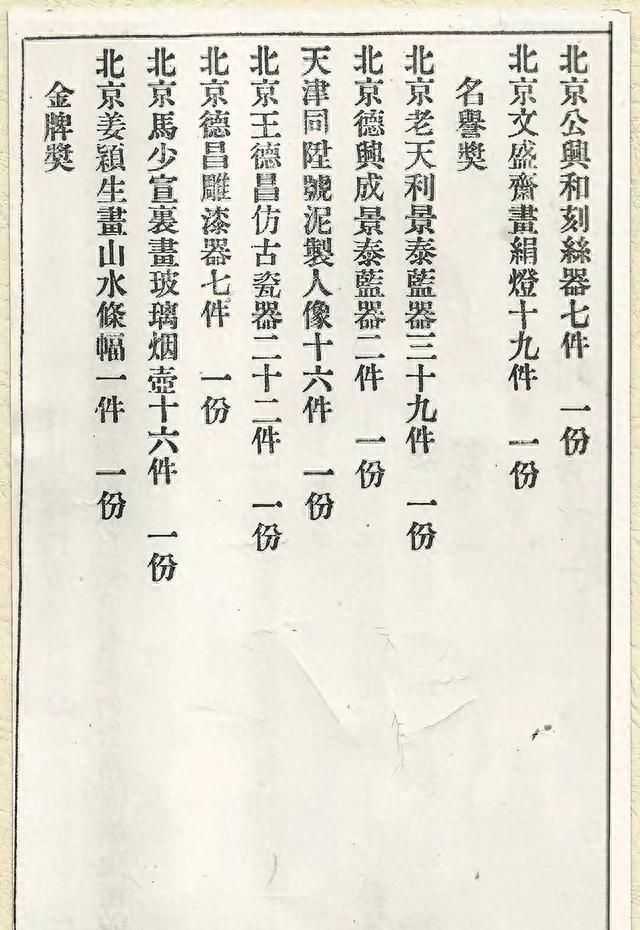 北京公興和刻絲器七件　一份
北京文盛齋畫絹燈十九件　一份
名譽獎
北京老天利景泰藍器三十九件　一份
北京德興成景泰藍器二件　一份
天津同陞號泥製人像十六件　一份
北京王德昌仿古瓷器二十二件　一份
北京德昌雕漆器七件　一份
北京馬少宣裏畫玻璃烟壺十六件　一份
北京姜穎生畫山水條幅一件　一份
金牌獎